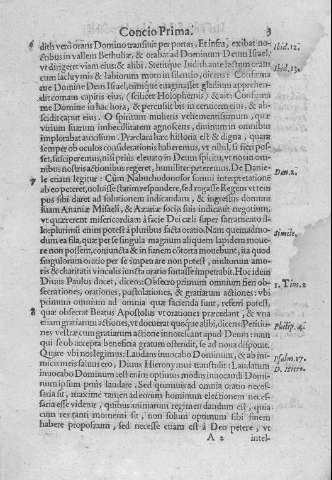 Concio Prima. 3
6 dith vero orans Domino transiuit per portas. Et infra, exibat no-
ctibus in vallem Bethuliæ, & orabat ad Dominum Deum Israel, Ibid. 12.
vt dirigeret viam eius, & alibi. Stetitque Iudith ante lectum orans
cum lachrymis & labiorum motu in silentio, dicens: Confirma Ibid. 13.
me Domine Deus Israel,
dit comam capitis eius, (scilicet Holophernis) & ait: Confirma
me Domine in hac hora, & percussit bis in ceruicem eius, & ab-
scidit caput eius. O spiritum mulieris vehementissimum, quæ
virium suarum imbecillitatem agnoscens, diuinum in omnibus
implorabat auxilium. Præclara hæc historia est & digna, quam
semper ob oculos considerationis haberemus, vt nihil, si fieri pos-
set, susciperemus, nisi prius eleuato in Deum spiritu, vt nos in om-
nibus nostris actionibus regeret, humiliter peteremus. De Danie-
7 le etiam legitur: Cum Nabuchodonosor somni interpretatione Dan. 2.
ab eo peteret, noluisse statim respondere, sed rogasse Regem vt tem
pus sibi daret ad solutionem indicandam, & ingressus domum
suam Ananiæ Misaeli, & Azariæ sociis suis indicauit negotium,
vt quærerent misericordiam à facie Dei cæli super sacramento il-
lo: plurimi enim potest à pluribus facta oratio. Nam quemadmo-
dum ea sila, quæ per se singula magnum aliquem lapidem moue- Simile.
re non possent, coniuncta & in funem contorta mouebunt, ita quod
singulorum oratio per se impetrare non potest, multorum amo-
ris & charitatis vinculis iuncta oratio fortasse impetrabit. Hoc idem
Diuus Paulus docet, dicens: Obsecro primum omnium fieri ob- 1. Tim. 2
secrationes, orationes, postulationes, & gratiarum actiones: vbi
primum omnium ad omnia quæ facienda sunt, referri potest,
8 quæ obsecrat Beatus Apostolus vt orationes præcedant, & vna
etiam gratiarum actiones, vt docuerat quoque alibi, dicens: Petitio- Philip. 4.
nes vestræ cum gratiarum actione innotescant apud Deum: nam
qui se ob accepta beneficia gratum ostendit, se ad noua disponit.
Quare vbi nos legimus: Laudans inuocabo Dominum, & ab ini- Psalm. 17.
micis meis saluus ero, Diuus Hieronymus transtulit: Laudatum D. Hiero.
inuocabo Dominum: est enim optimus modus inuocandi Domi-
num ipsum prius laudare. Sed quamuis ad omnia oratio neces-
saria sit, maxime tamen ad eorum hominum electionem neces-
saria esse videtur, quibus animarum regimen dandum est, quia
cum res tanti momenti sit, non solum optimum sibi finem
habere proposuum, sed necesse etiam est à Deo petere, vt
A 2 intel-